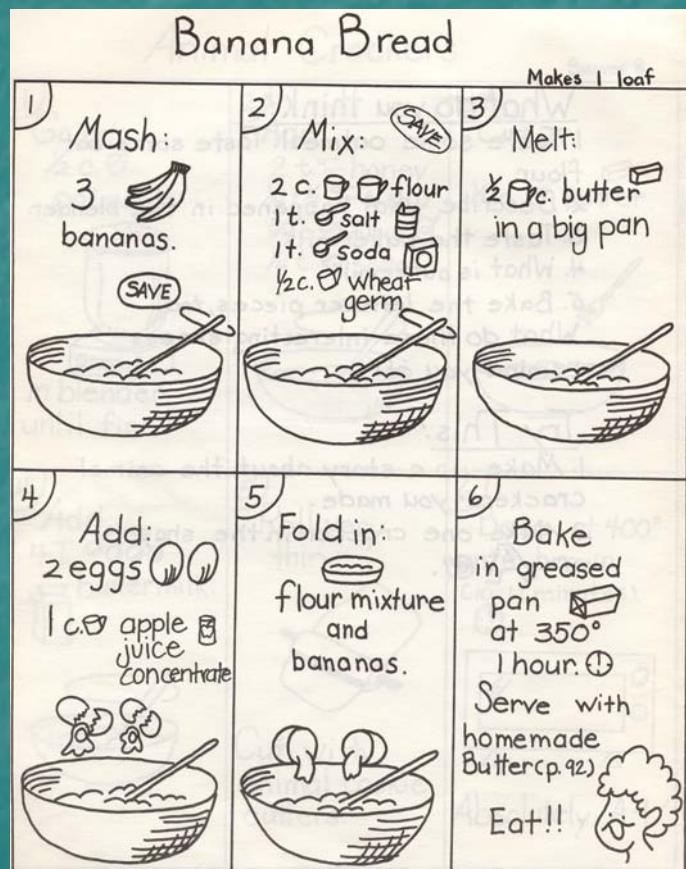 Banana Bread
Makes 1 loaf
1
Mash:
3
bananas.
SAVE
2
Mix:
SAVE
2 c. flour
1 t. salt
1 t. soda
1/2 c. wheat
germ
3
Melt:
1/2 c. butter
in a big pan
4
Add:
2 eggs
1 c. apple
juice
concentrate
5
Fold in:
flour mixture
and
bananas.
6
Bake
in greased
pan
at 350°
1 hour.
Serve with
homemade
Butter (p. 92)
Eat!!